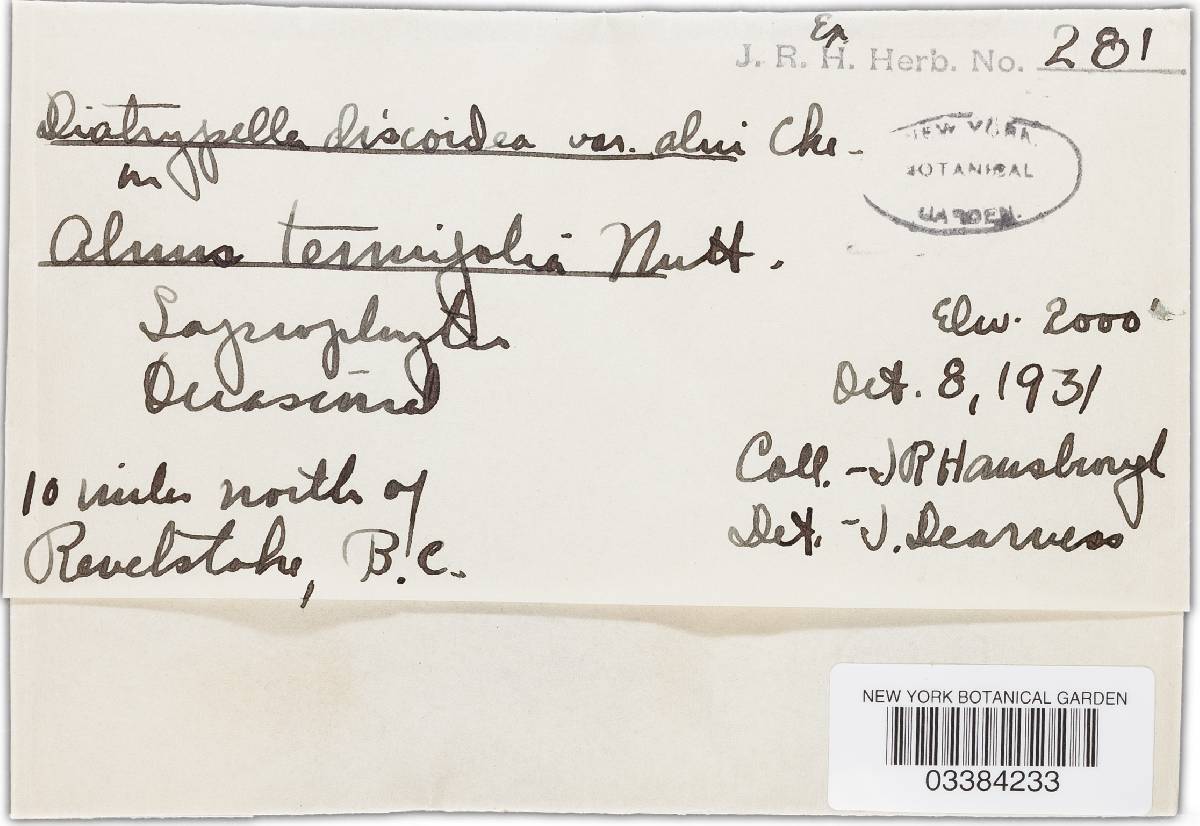 Ex
J. R. H. Herb. No. 281
Diatrypella discoidea var. alni Cke.
on
NEW YORK
BOTANICAL
GARDEN.
Alnus tenuifolia Nutt.
Saprophytic
Elev. 2000'
Occasional
Oct. 8, 1931
10 miles north of
Revelstoke, B.C.
Coll. - J R Hansbrough
Det. - J. Dearness
NEW YORK BOTANICAL GARDEN
03384233